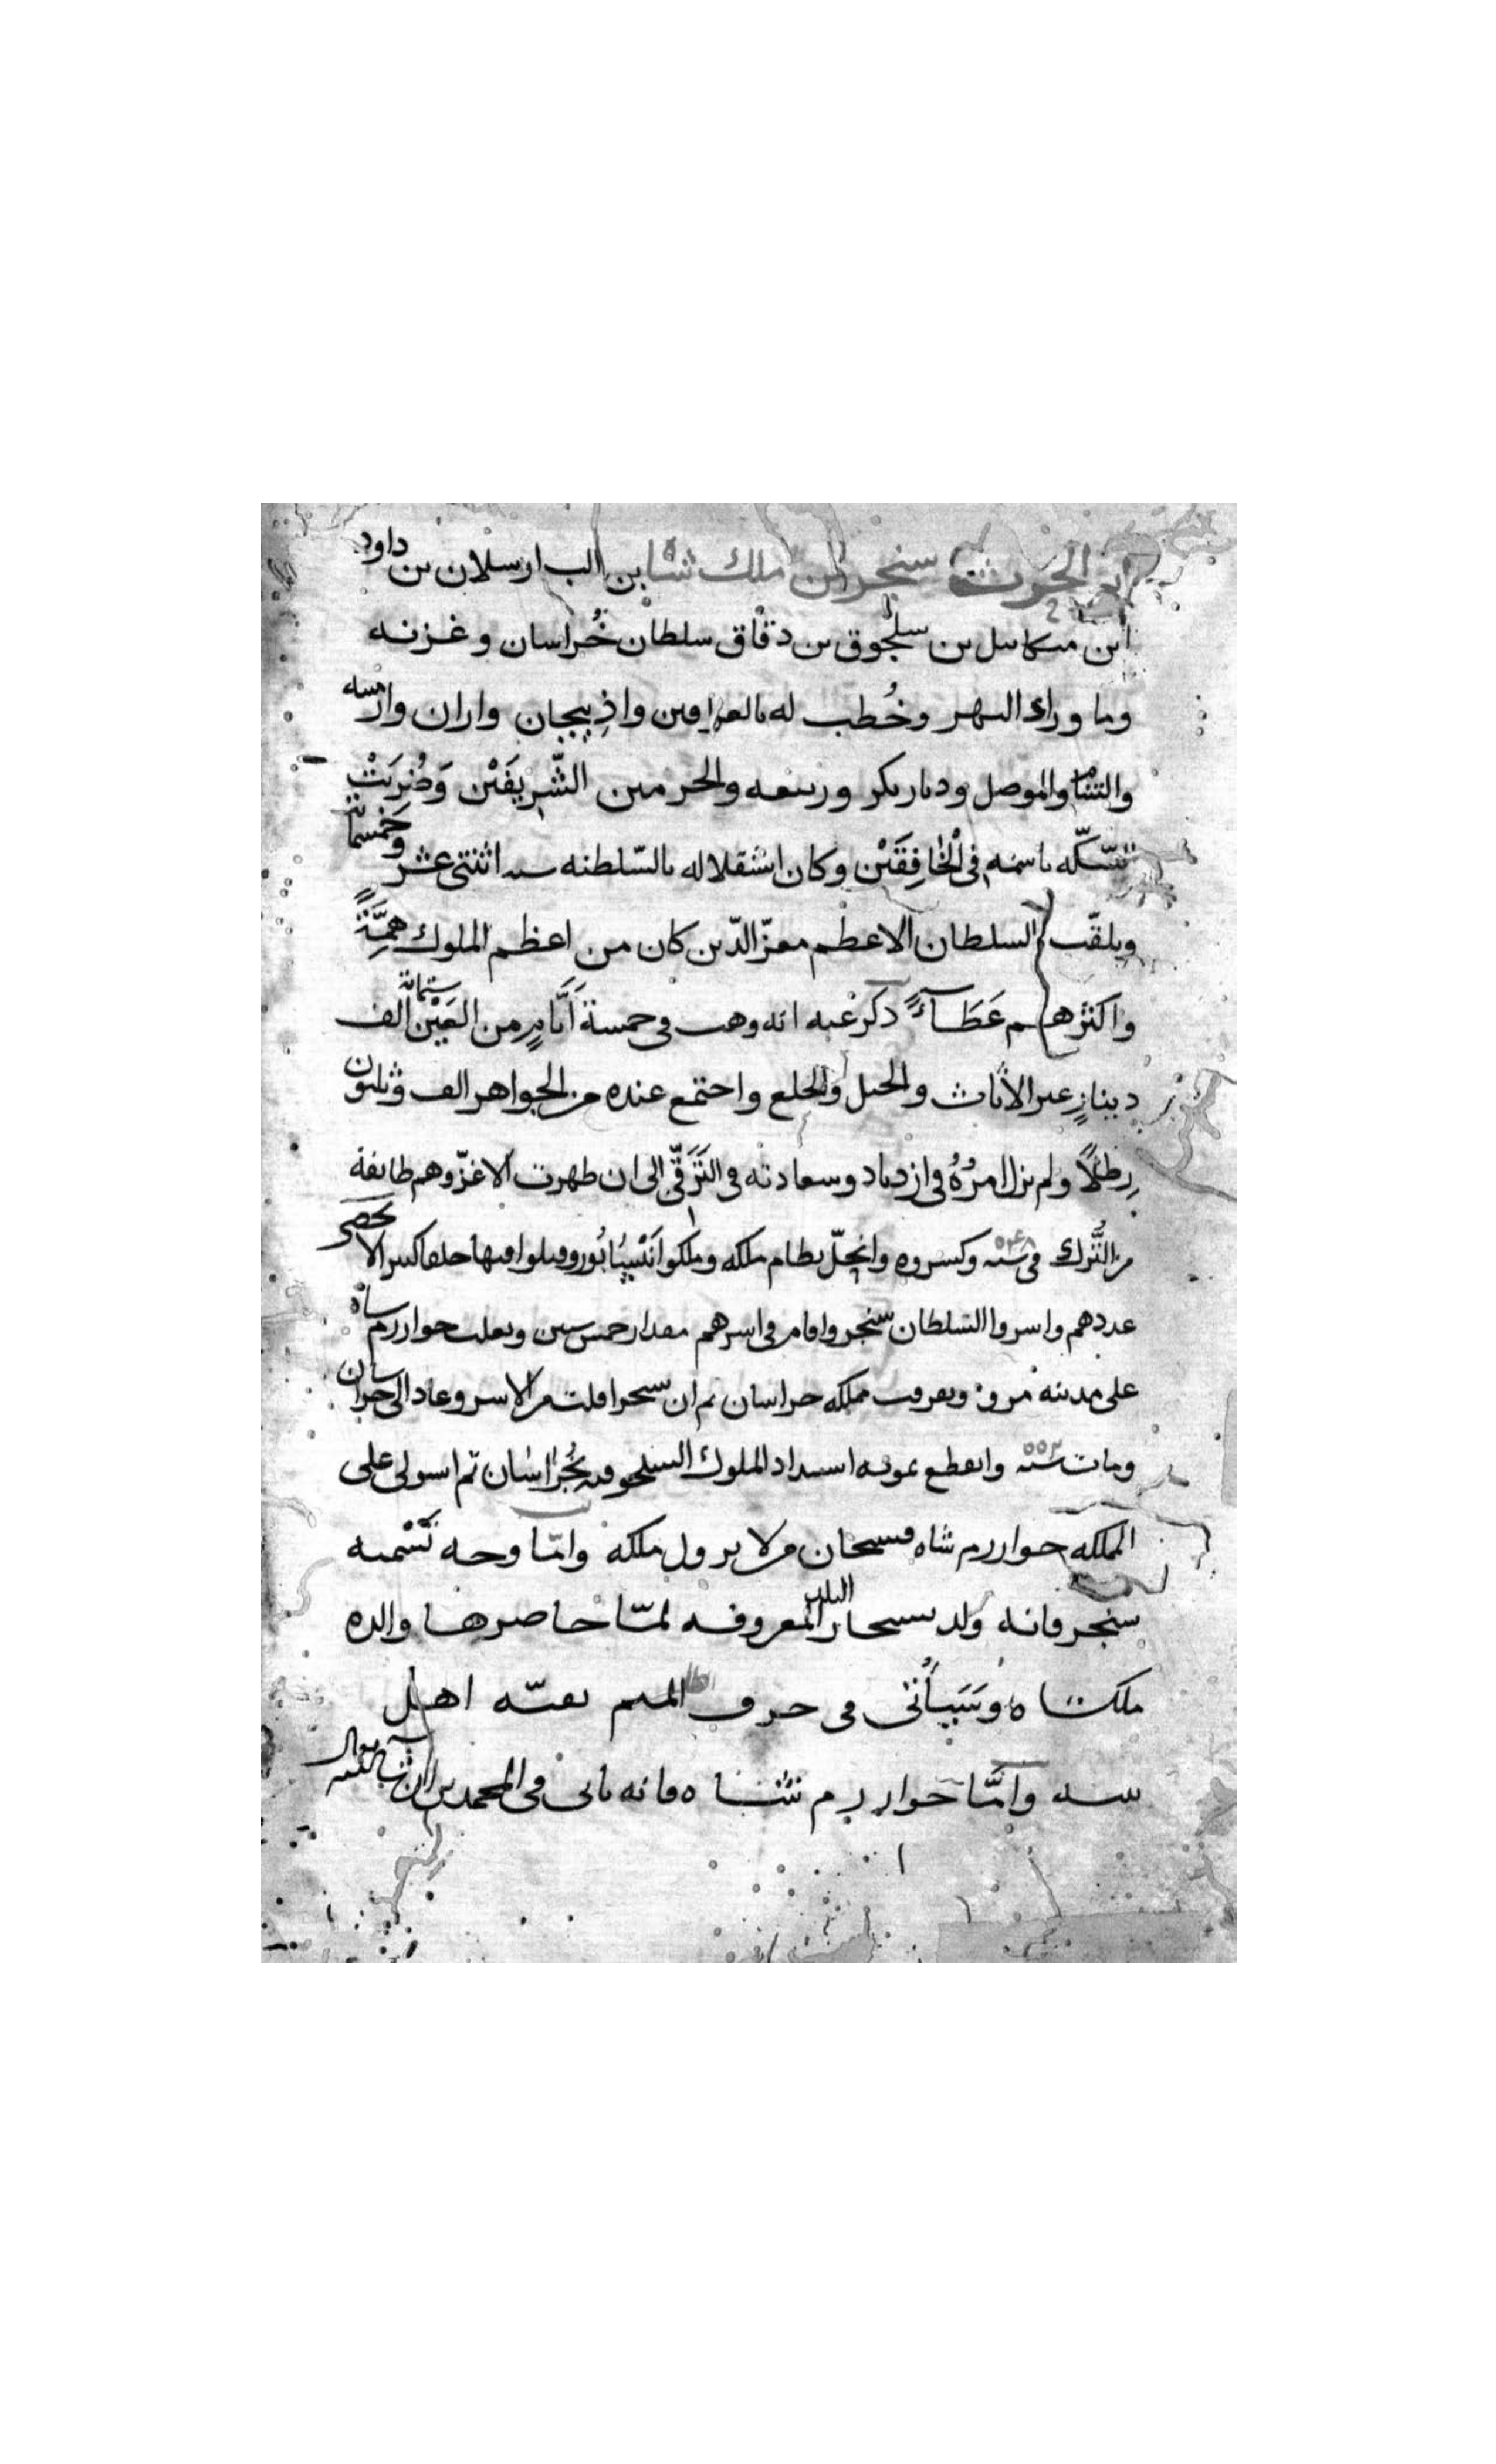 ابو الحرث سنجر بن ملك شاه بن الب ارسلان بن داود
ابن ميكاييل بن سلجوق بن دقاق سلطان خُراسان وغزنه
وما وراء النهر وخُطب له بالعراقين واذربيجان واران وارمينيه
والشام والموصل وديار بكر وربيعه والحرمين الشّريفَيْن وَضُربَتْ
السّكّه باسمه فى الْخافِقَيْن وكان استقلاله بالسّلطنه سنه اثنتى عشر وخمسمائة
ويلقّب السلطان الاعظم معزّ الدّين كان من اعظم الملوك همَّةً
واكثرهم عَطَآءً ذكر عنه انه وهب فى خمسة اَيَّامٍ من العَيْن ستمائة الف
دينارٍ غير الاثاث والخيل والخلع واجتمع عنده من الجواهر الف وثلثون
رِطْلاً ولم يزل امرُهُ فى ازدياد وسعادته فى التَّرَقّى الى ان ظهرت الاغزّ وهم طائفة
من التُّرك فى سنه ٥٤٨ وكسروه وانحلّ نظام ملكه وملكوا نَيْسَابُور وقتلوا فيها خلقا كثيرا لا يحصى
عددهم واسروا السّلطان سنجر واقام فى اسرهم مقدار خمس سنين وتغلب خوارزم شاه
على مدينه مرو وتفرقت مملكه خراسان ثم ان سنجر افلت من الاسر وعاد الى خراسان
ومات سنه ٥٥٢ وانقطع بموته استبداد الملوك السلجوقيه بخُراسان ثم استولى على
المملكه خوارزم شاه فسبحان من لا يزول ملكه وامّا وجه تَسْميته
سنجر فانه ولد بسنجار البلد المعروفه لمّا حاصرها والده
ملكشاه وسَيَأتى فى حرف الميم بقيّه اهل
بيته وامَّا خوارزم شاه فانه ياتى فى المحمدين ان شا الله تعالى